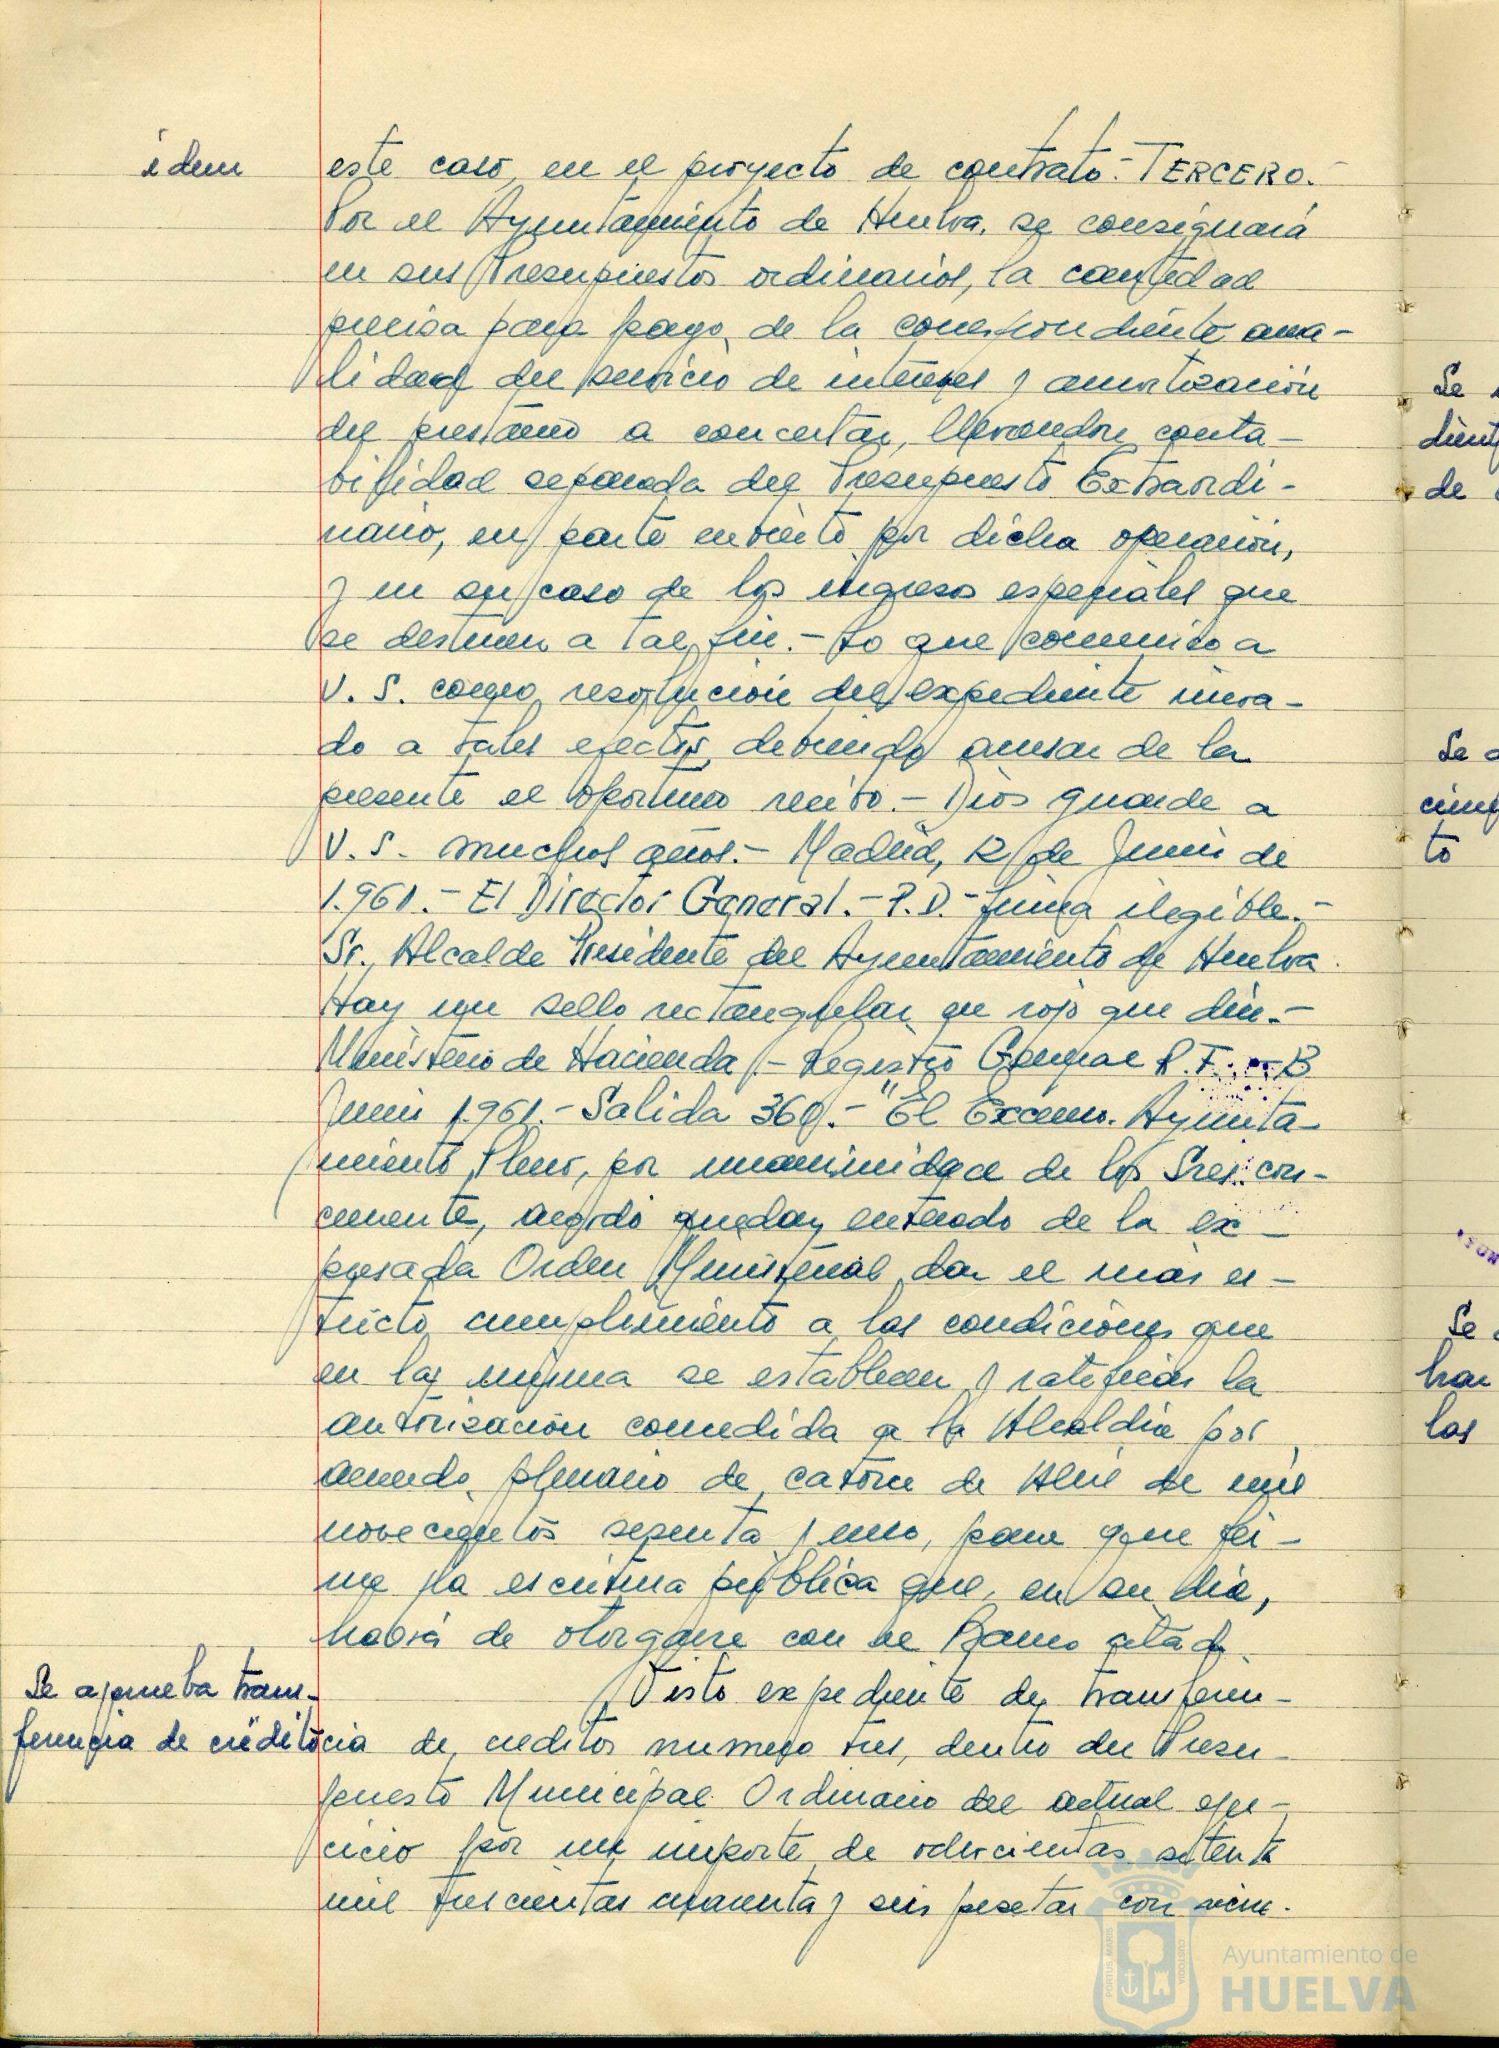 idem
este caso, en el proyecto de contrato.- TERCERO.-
Por el Ayuntamiento de Huelva, se consignará
en sus Presupuestos ordinarios, la cantidad
precisa para pago, de la correspondiente anua-
lidad del servicio de intereses y amortización
del prestamo a concertar, llevandose conta-
bilidad separada del Presupuesto Extraordi-
nario, en parte cubierto por dicha operación,
y en su caso de los ingresos especiales que
se destinen a tal fin.- Lo que comunico a
V. S. como resolución del expediente incoa-
do a tales efectos, debiendo acusar de la
presente el oportuno recibo.- Dios guarde a
V. S. muchos años.- Madrid, 12 de Junio de
1.961.- El Director General.- P. D.- firma ilegible.-
Sr. Alcalde Presidente del Ayuntamiento de Huelva.
Hay un sello rectangular en rojo que dice.-
Ministerio de Hacienda.- Registro General R. F. - 13
Junio 1.961.- Salida 360.- "El Excmo. Ayunta-
miento Pleno, por unanimidad de los Sres. con-
currente, acordó quedar enterado de la ex-
presada Orden Ministerial, dar el más es-
tricto cumplimiento a las condiciones que
en la misma se establecen y ratificar la
autorización concedida a la Alcaldia por
acuerdo plenario de catorce de Abril de mil
novecientos sesenta y uno, para que fir-
me la escritura pública que, en su dia,
habrá de otorgarse con el Banco citado.
Se aprueba trans-
ferencia de créditos
Visto expediente de transferen-
cia de creditos numero tres, dentro del Presu-
puesto Municipal Ordinario del actual ejer-
cicio por un importe de ochocientas setenta
mil trescientas cuarenta y seis pesetas con
Se
dient
de
Se
to
Se
las
Ayuntamiento de
HUELVA
PORTUS MARIS
CUSTODIA